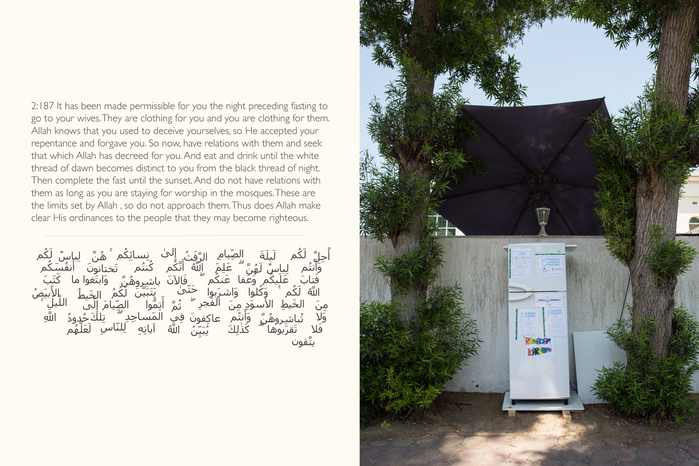 2:187 It has been made permissible for you the night preceding fasting to
go to your wives. They are clothing for you and you are clothing for them.
Allah knows that you used to deceive yourselves, so He accepted your
repentance and forgave you. So now, have relations with them and seek
that which Allah has decreed for you. And eat and drink until the white
thread of dawn becomes distinct to you from the black thread of night.
Then complete the fast until the sunset. And do not have relations with
them as long as you are staying for worship in the mosques. These are
the limits set by Allah , so do not approach them. Thus does Allah make
clear His ordinances to the people that they may become righteous.
أُحِلَّ لَكُم لَيلَةَ الصِّيامِ الرَّفَثُ إِلىٰ نِسائِكُم ۚ هُنَّ لِباسٌ لَكُم
وَأَنتُم لِباسٌ لَهُنَّ ۗ عَلِمَ اللَّهُ أَنَّكُم كُنتُم تَختانونَ أَنفُسَكُم
فَتابَ عَلَيكُم وَعَفا عَنكُم ۖ فَالآنَ باشِروهُنَّ وَابتَغوا ما كَتَبَ
اللَّهُ لَكُم ۚ وَكُلوا وَاشرَبوا حَتّىٰ يَتَبَيَّنَ لَكُمُ الخَيطُ الأَبيَضُ
مِنَ الخَيطِ الأَسوَدِ مِنَ الفَجرِ ۖ ثُمَّ أَتِمُّوا الصِّيامَ إِلَى اللَّيلِ ۚ
وَلا تُباشِروهُنَّ وَأَنتُم عاكِفونَ فِي المَساجِدِ ۗ تِلكَ حُدودُ اللَّهِ
فَلا تَقرَبوها ۗ كَذٰلِكَ يُبَيِّنُ اللَّهُ آياتِهِ لِلنّاسِ لَعَلَّهُم
يَتَّقونَ
RAMADAN
KAREEM